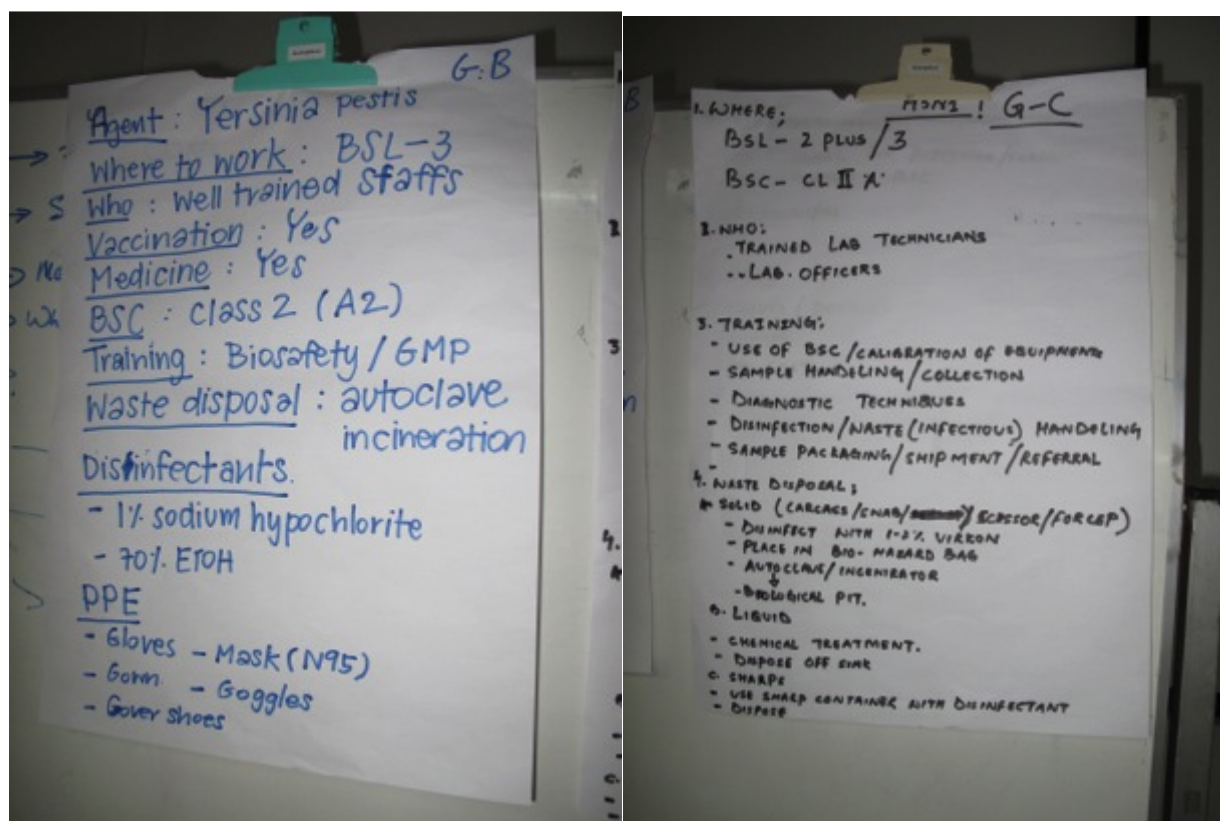 G:B
Agent : Yersinia pestis
Where to work : BSL-3
Who : Well trained staffs
Vaccination : Yes
Medicine : Yes
BSC : Class 2 (A2)
Training : Biosafety / GMP
Waste disposal : autoclave
incineration
Disinfectants.
- 1% sodium hypochlorite
- 70% EtOH
PPE
- Gloves - Mask (N95)
- Gown - Goggles
- Cover shoes
H5N1 ! G-C
1. WHERE;
BSL - 2 PLUS / 3
BSC - CL II A
2. WHO:
. TRAINED LAB TECHNICIANS
.. LAB. OFFICERS
3. TRAINING:
- USE OF BSC / CALIBRATION OF EQUIPMENTS
- SAMPLE HANDELING / COLLECTION
- DIAGNOSTIC TECHNIQUES
- DISINFECTION / WASTE (INFECTIOUS) HANDELING
- SAMPLE PACKAGING / SHIPMENT / REFERRAL
4. WASTE DISPOSAL;
A SOLID (CARCASS / SWAB / SCISSOR / FORCEP)
- DISINFECT WITH 1-2% VIRKON
- PLACE IN BIO-HAZARD BAG
- AUTOCLAVE / INCENIRATOR
- BIOLOGICAL PIT.
B. LIQUID
- CHEMICAL TREATMENT.
- DISPOSE OFF SINK
C. SHARPS
- USE SHARP CONTAINER WITH DISINFECTANT
- DISPOSE